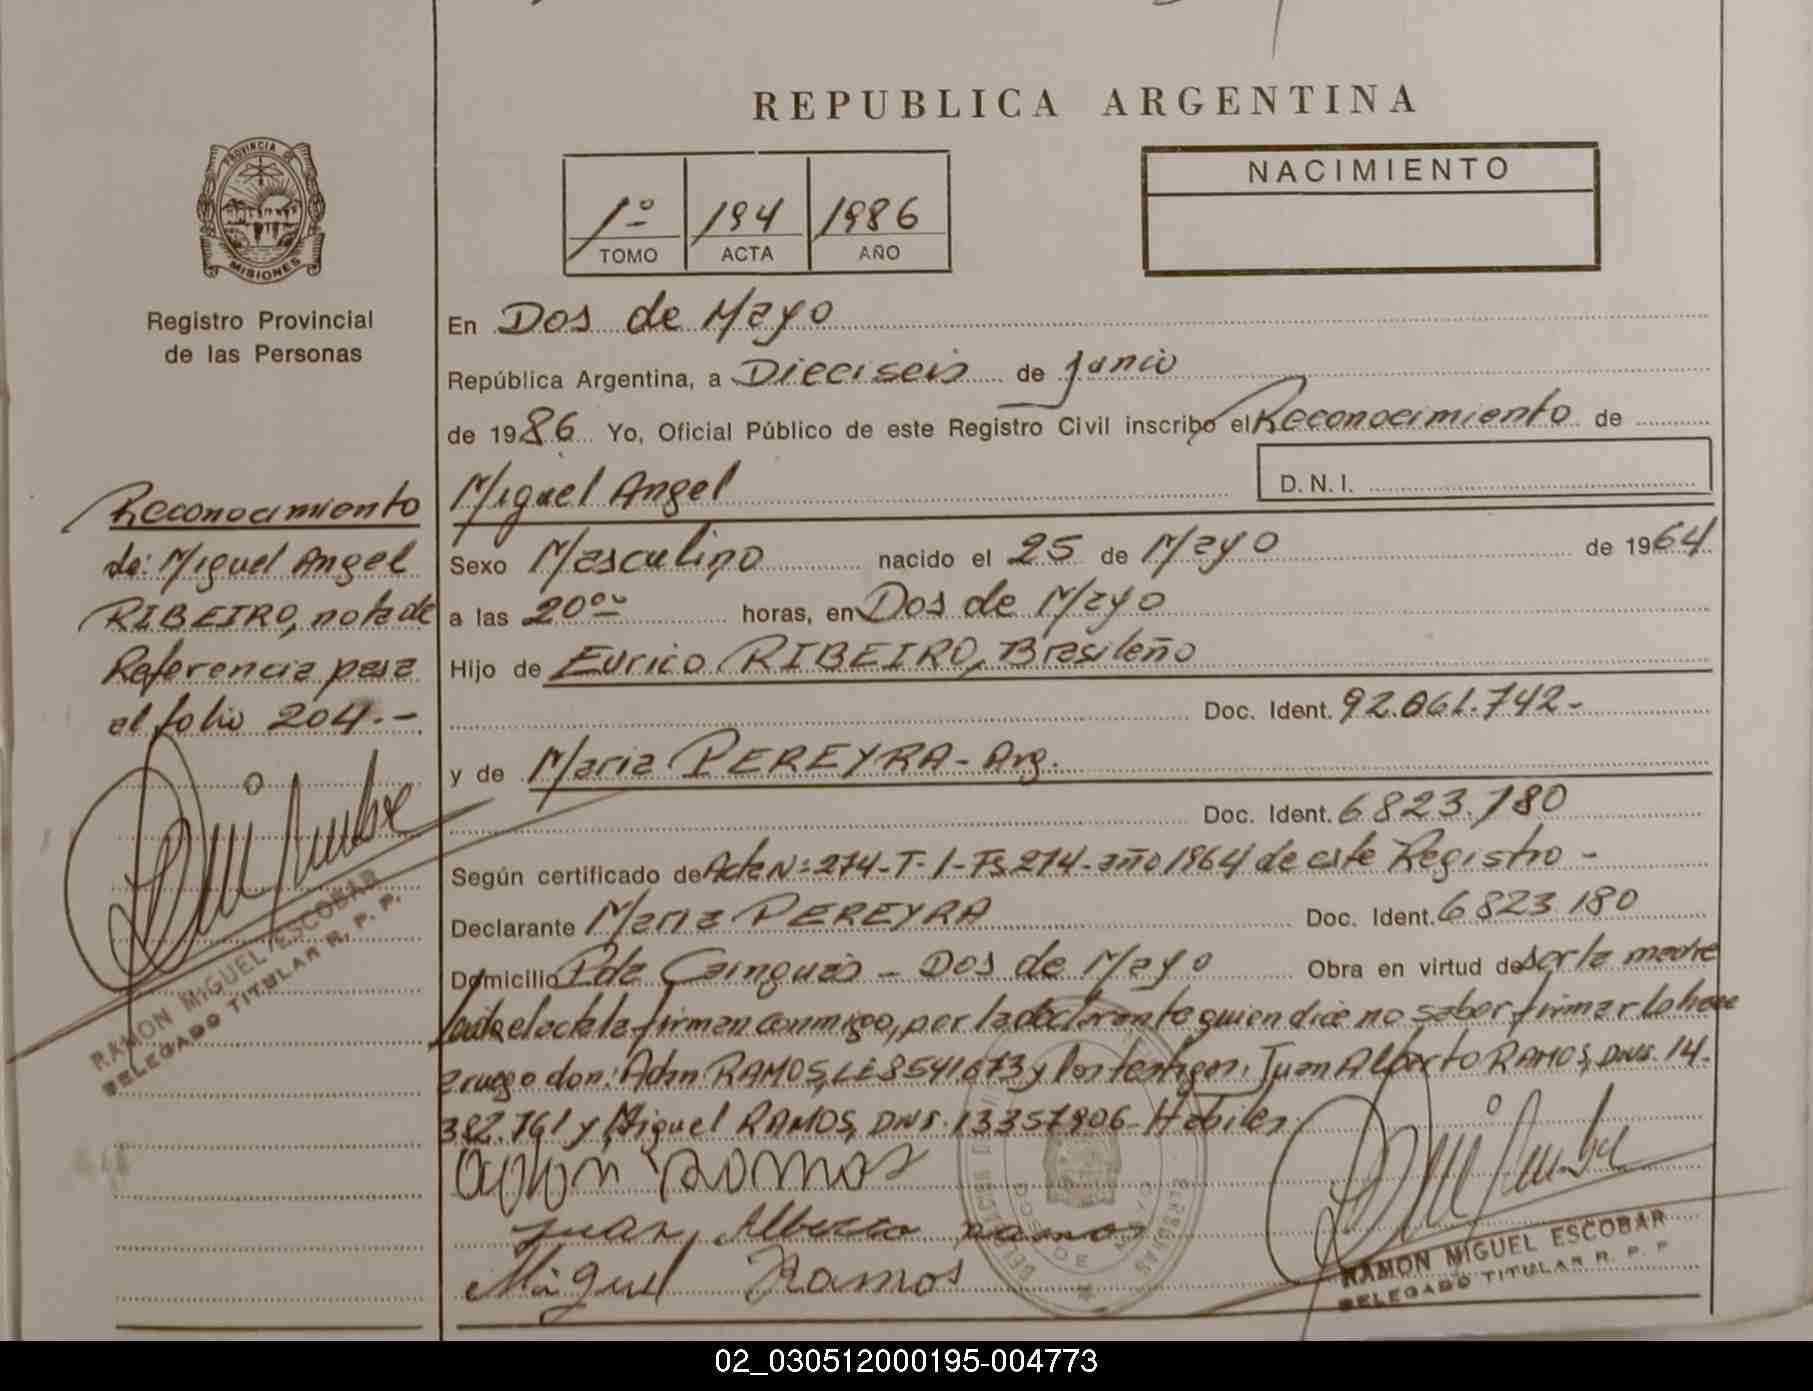 REPUBLICA ARGENTINA
PROVINCIA DE
MISIONES
Registro Provincial
de las Personas
1º 194 1986
TOMO ACTA AÑO
NACIMIENTO
En Dos de Mayo
República Argentina, a Dieciseis de junio
de 1986 Yo, Oficial Público de este Registro Civil inscribo el Reconocimiento de
Miguel Angel
D. N. I.
Sexo Masculino nacido el 25 de Mayo de 1964
a las 20⁰⁰ horas, en Dos de Mayo
Hijo de Eurico RIBEIRO, Brasileño
Doc. Ident. 92.061.742-
y de Maria PEREYRA - Arg.
Doc. Ident. 6823.180
Según certificado de Acta Nº 274-T-1-Fs 274-año 1964 de este Registro -
Declarante Maria PEREYRA Doc. Ident. 6823 180
Domicilio Pda Cainguas - Dos de Mayo Obra en virtud de ser la madre
leida el acta la firman conmigo, por la declarante quien dice no saber firmar lo hace
a ruego don: Adan RAMOS, LE 8541673 y los testigos: Juan Alberto RAMOS, DNI. 14.
382.761 y Miguel RAMOS, DNI. 13357906- Habiles.
Ramos
Juan Alberto Ramos
Miguel Ramos
RAMON MIGUEL ESCOBAR
DELEGADO TITULAR R. P. P.
Reconocimiento
de: Miguel Angel
RIBEIRO, nota de
Referencia pasa
al folio 204.-
RAMON MIGUEL ESCOBAR
DELEGADO TITULAR R. P. P.
02_030512000195-004773